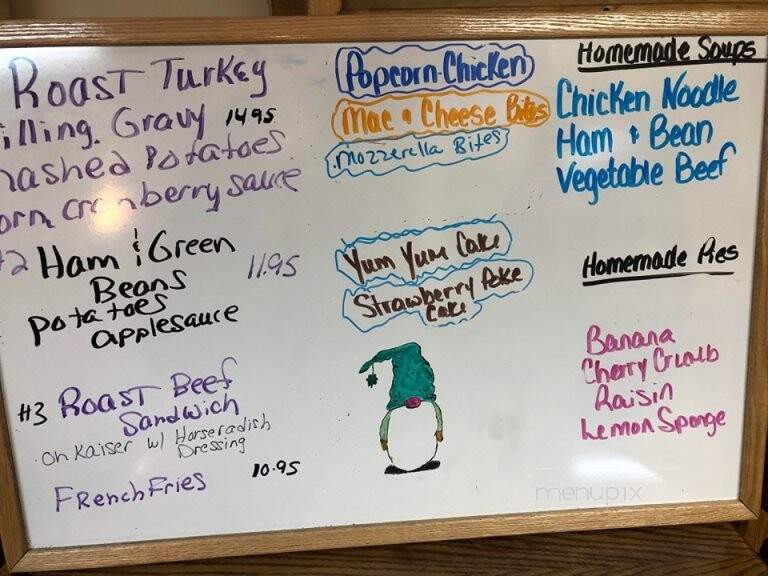 Roast Turkey
illing. Gravy 1495
mashed Potatoes
orn, cranberry sauce
#2 Ham & Green
Beans 11.95
potatoes
applesauce
#3 Roast Beef
Sandwich
on Kaiser w/ Horseradish
Dressing
French Fries 10.95
Popcorn Chicken
Mac & Cheese Bites
mozzerella Bites
Yum Yum Cake
Strawberry Poke
Cake
Homemade Soups
Chicken Noodle
Ham & Bean
Vegetable Beef
Homemade Pies
Banana
Cherry Crumb
Raisin
Lemon Sponge
menupix